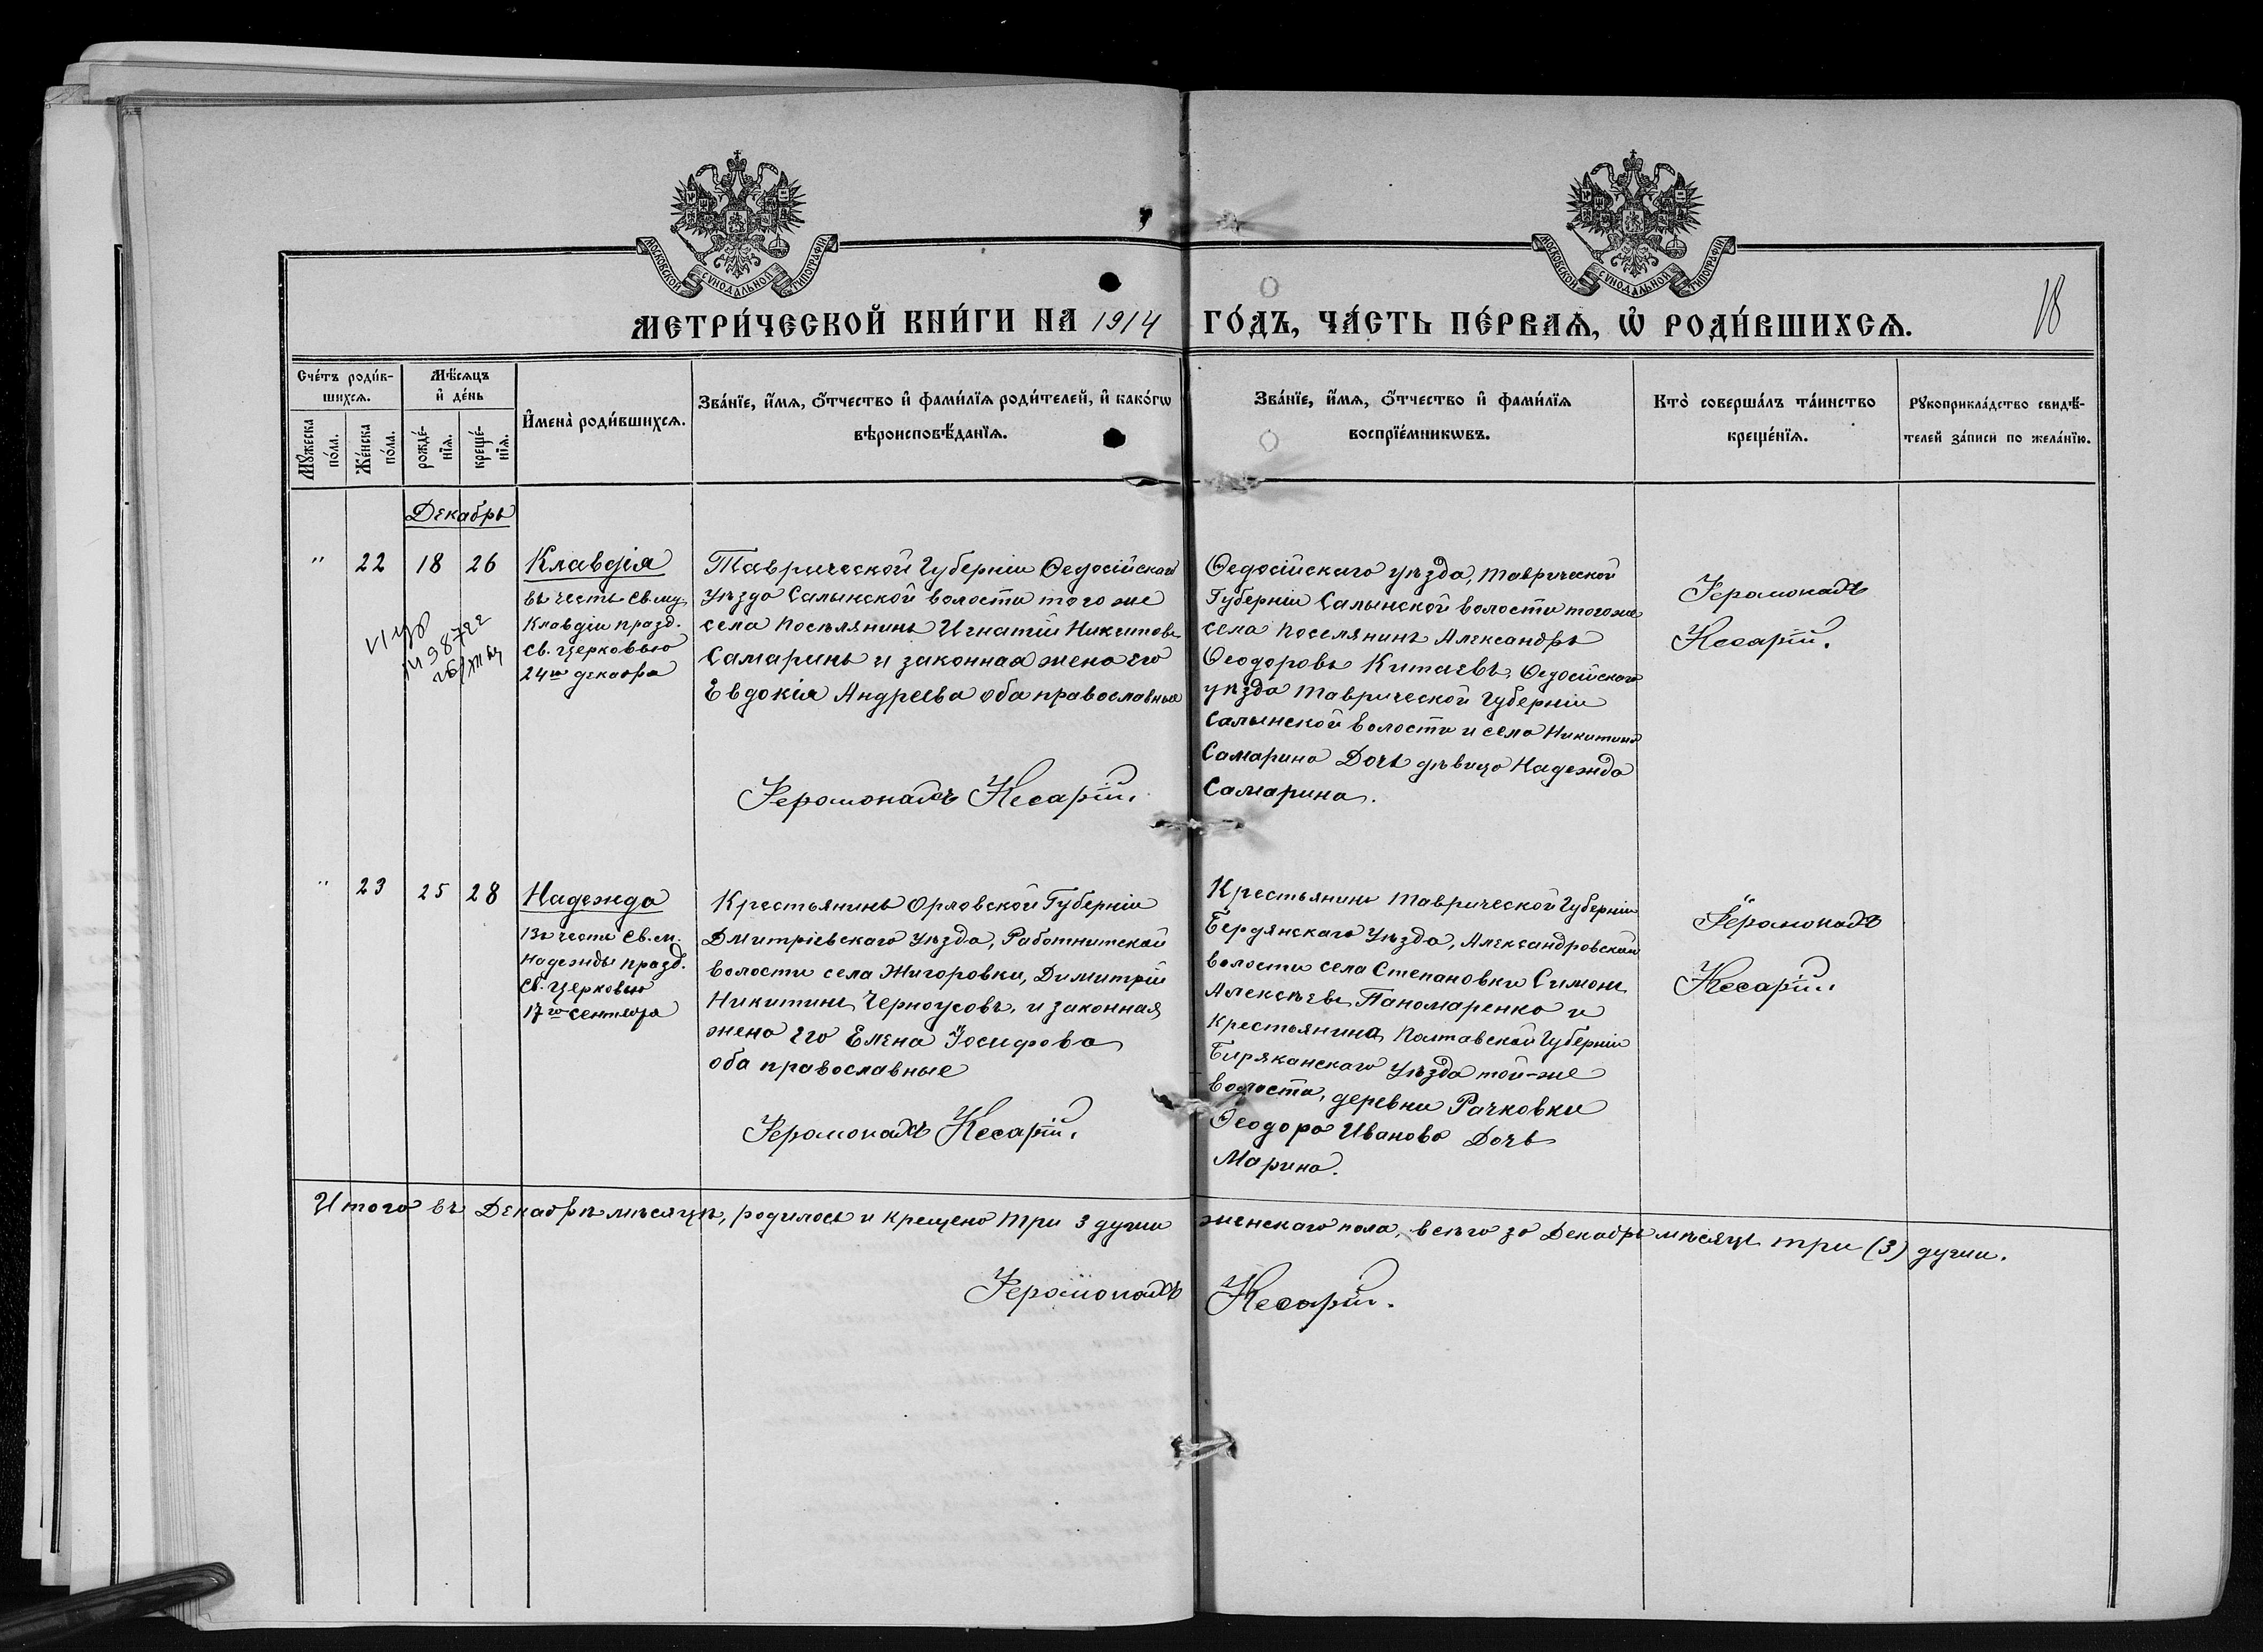 МОСКОВСКОЙ СѴНОДАЛЬНОЙ ТИПОГРАФІИ
МОСКОВСКОЙ СѴНОДАЛЬНОЙ ТИПОГРАФІИ
МЕТРИ́ЧЕСКОЙ КНИ́ГИ НА 1914 ГО́ДЪ, ЧА́СТЬ ПЕ́РВАѦ, Ѡ РОДИ́ВШИХСѦ.
18
Сче́тъ роди́в-
шихсѧ.
Мꙋжеска
по́ла.
Же́нска
по́ла.
Мѣ́сѧцъ
и҆ де́нь
рожде́-
нїѧ.
креще́-
нїѧ.
И҆мена̀ роди́вшихсѧ.
Зва́нїе, и҆́мѧ, ѻ҆́тчество и҆ фами́лїѧ роди́телей, и҆ како́гѡ
вѣроисповѣ́данїѧ.
Зва́нїе, и҆́мѧ, ѻ҆́тчество и҆ фами́лїѧ
воспрїе́мникѡвъ.
Кто̀ соверша́лъ та́инство
креще́нїѧ.
Рꙋкоприкла́дство свидѣ́-
телей за́писи по жела́нїю.
Декабрь
" 22 18 26
Клавдія
въ честь Св. му.
Клавдіи празд.
Св. Церковью
24го декабря
Таврической Губерніи Ѳедосійскаго
Уѣзда Салынской волости того же
села поселянинъ Игнатій Никитовъ
Самаринъ и законная жена его
Евдокія Андреева оба православные
Іеромонахъ Кесарій.
Ѳедосійскаго уѣзда, Таврической
Губерніи Салынской волости того же
села поселянинъ Александръ
Ѳеодоровъ Китаевъ, Ѳедосійскаго
уѣзда Таврической Губерніи
Салынской волости и села Никитина
Самарина Дочь дѣвица Надежда
Самарина.
Іеромонахъ
Кесарій.
" 23 25 28
Надежда
Въ честь Св. м.
Надежды празд.
Св. Церковью
17го Сентября
Крестьянинъ Орловской Губерніи
Дмитріевскаго Уѣзда, Работнитской
волости села Жигоровки, Димитрій
Никитинъ Черноусовъ, и законная
жена его Елена Іосифова
оба православные
Іеромонахъ Кесарій.
Крестьянинъ Таврической Губерніи
Бердянскаго Уѣзда, Александровской
волости села Степановки Симонъ
Алексѣевъ Панoмаренко и
Крестьянина Полтавской Губерніи
Биряканскаго Уѣзда той-же
волости, деревни Рачковки
Ѳеодора Иванова Дочь
Марина.
Іеромонахъ
Кесарій.
Итого въ Декабрѣ мѣсяцѣ, родилось и крещено три 3 души женскаго пола, всего за Декабрь мѣсяцъ три (3) души.
Іеромонахъ Кесарій.